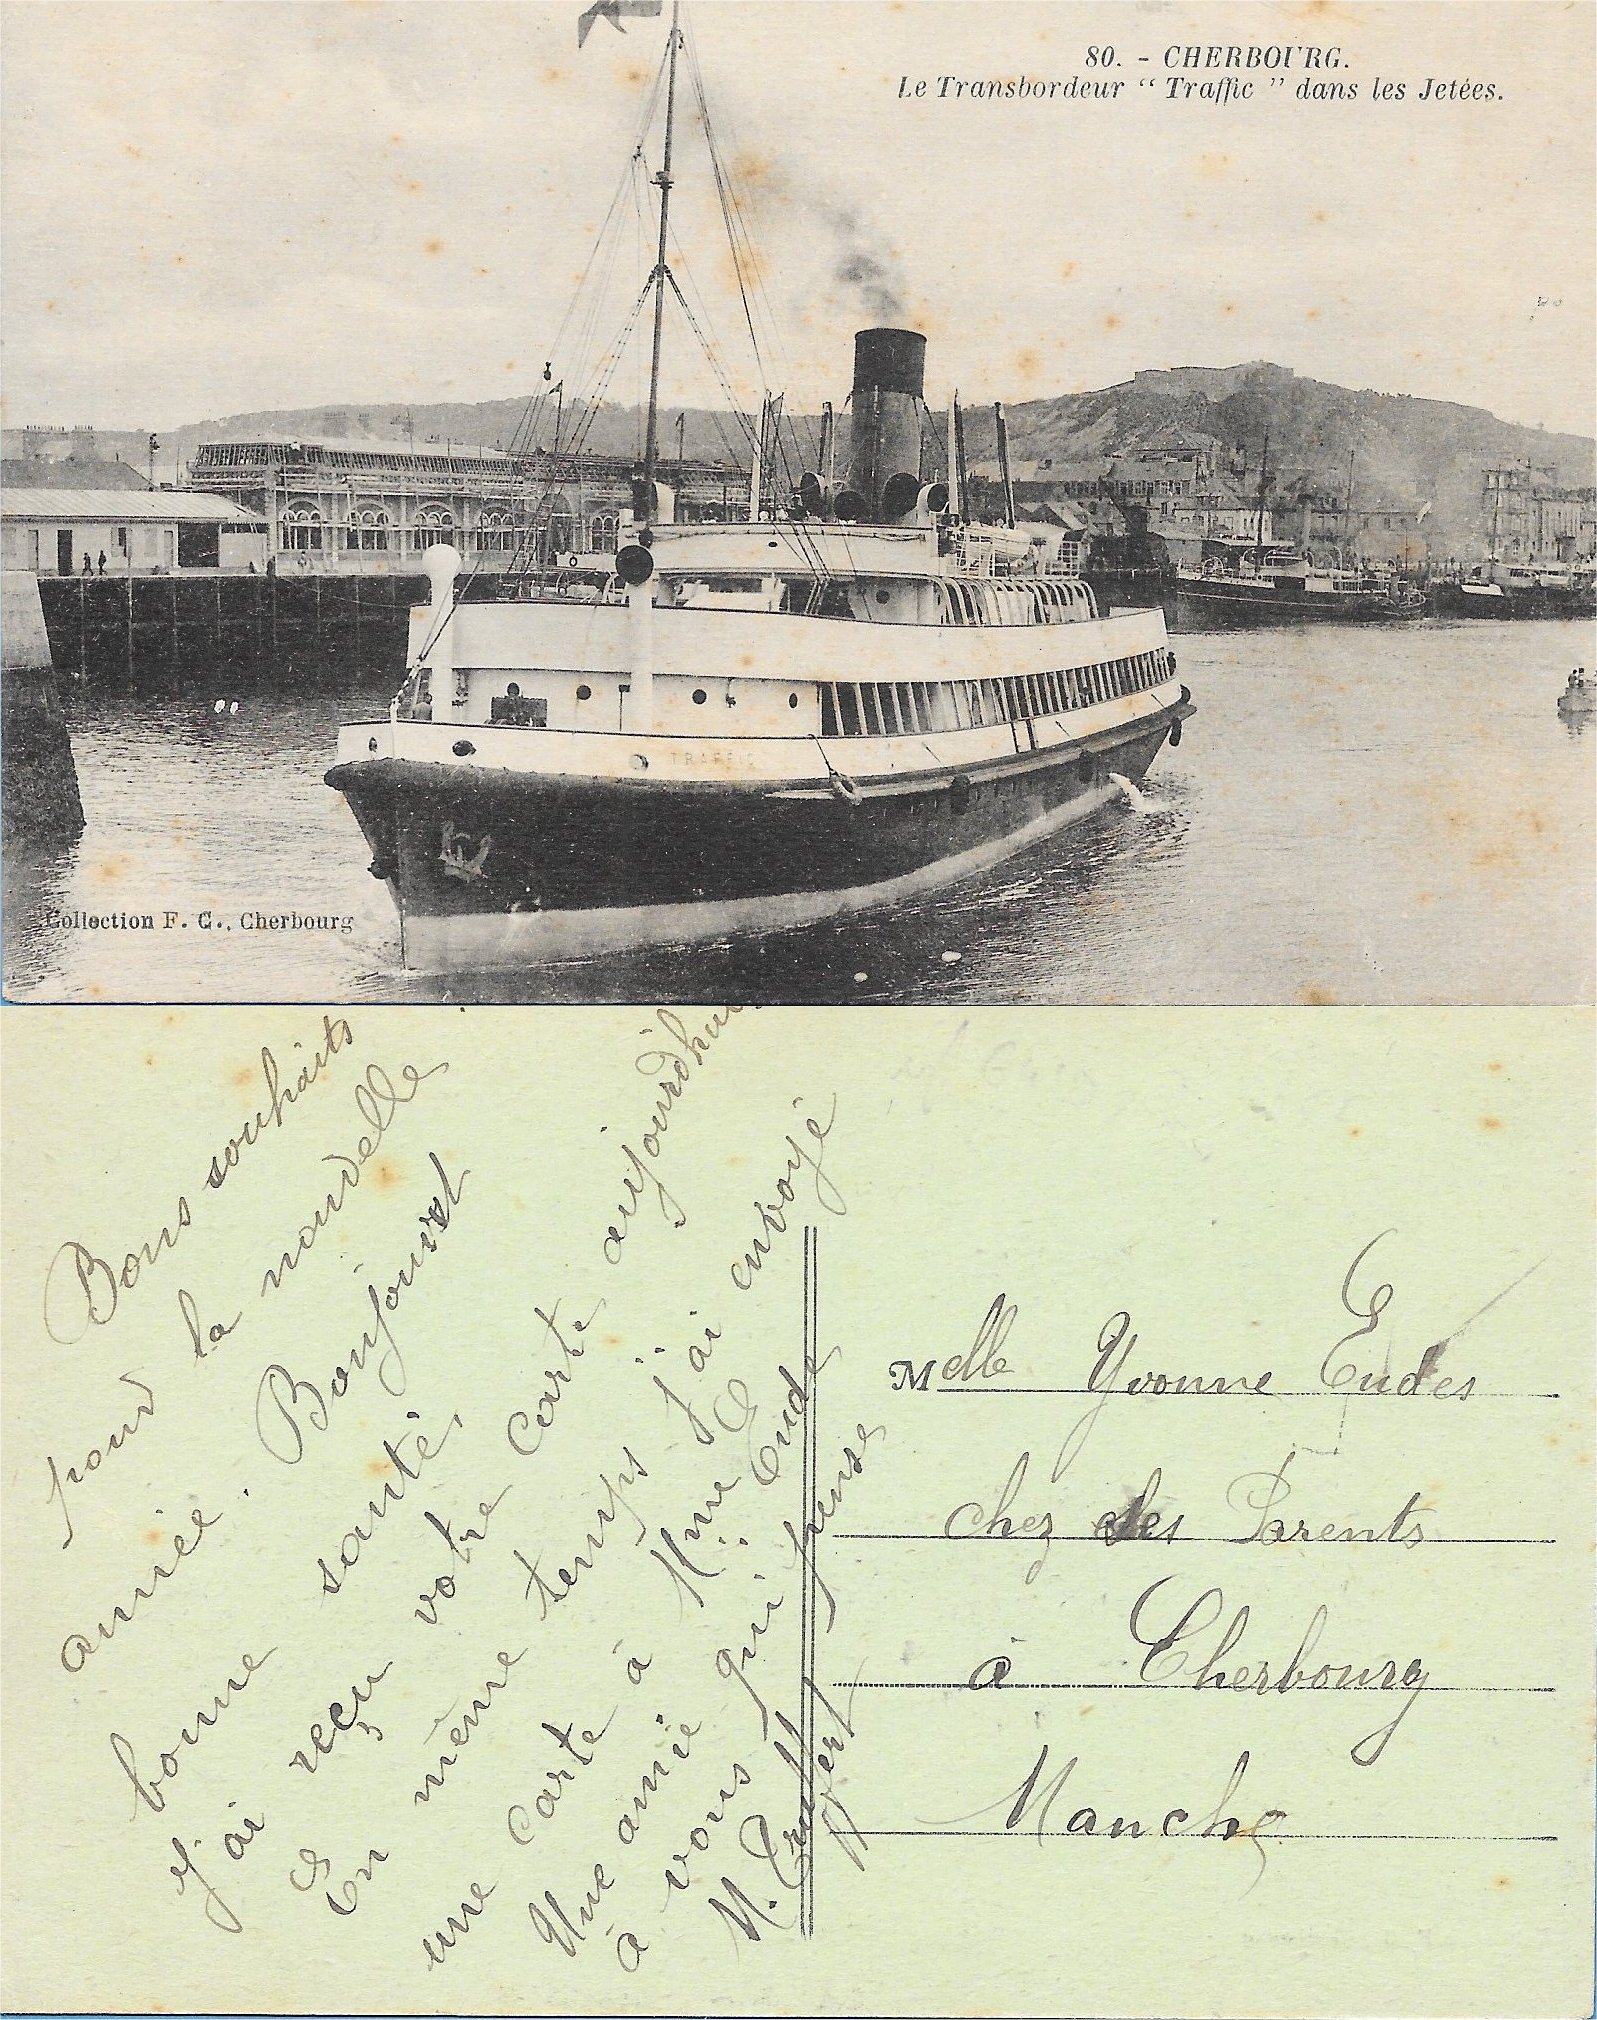 80. - CHERBOURG.
Le Transbordeur “ Traffic ” dans les Jetées.
TRAFFIC
Collection F. G., Cherbourg
Bons souhaits
pour la nouvelle
année. Bonjour et
bonne santé.
J'ai reçu votre carte aujourdhui
En même temps j'ai envoyé
une carte à Mme Eude
Une amie qui pense
à vous
M.
Melle Yvonne Eudes
chez des Parents
à Cherbourg
Manche